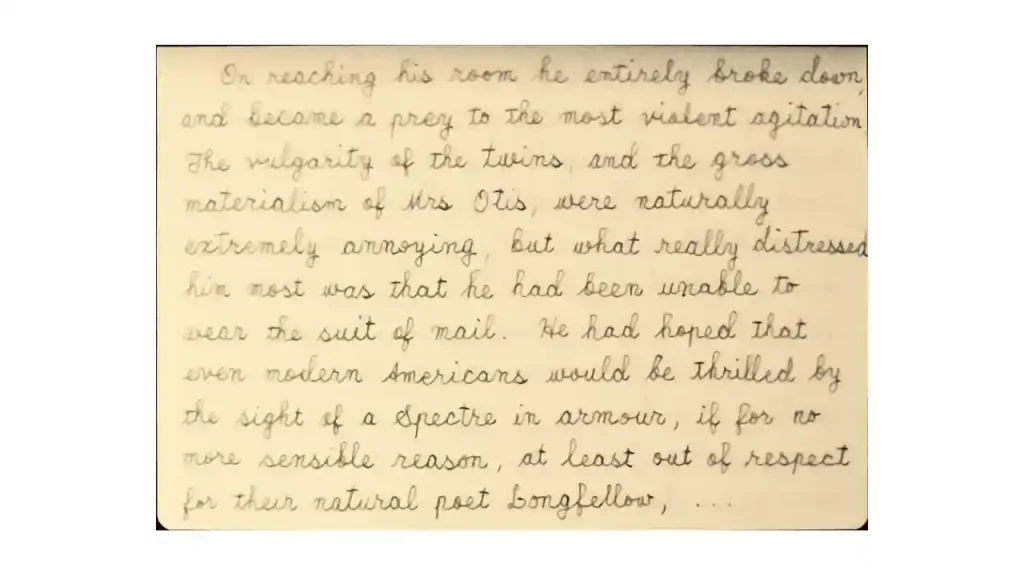 On reaching his room he entirely broke down,
and became a prey to the most violent agitation
The vulgarity of the twins, and the gross
materialism of Mrs Otis, were naturally
extremely annoying, but what really distressed
him most was that he had been unable to
wear the suit of mail. He had hoped that
even modern Americans would be thrilled by
the sight of a Spectre in armour, if for no
more sensible reason, at least out of respect
for their natural poet Longfellow, ...